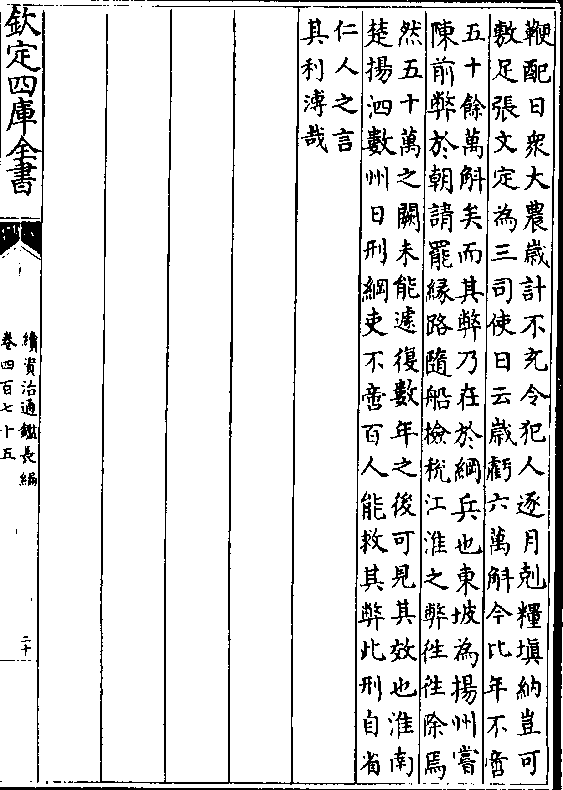 鞭配日衆大農歲計不充令犯人逐月剋糧塡納豈可
敷足張文定為三司使日云歲虧六萬斛今比年不啻
五十餘萬斛矣而其弊乃在於綱兵也東坡為揚州嘗
陳前弊於朝請罷縁路隨船檢稅江淮之弊徃徃除焉
然五十萬之闕未能遽復數年之後可見其效也淮南
楚揚泗數州日刑綱吏不啻百人能救其弊此刑自省
仁人之言
其利溥哉
欽定四庫全書
續資治通鑑長編
卷四百七十五
二十